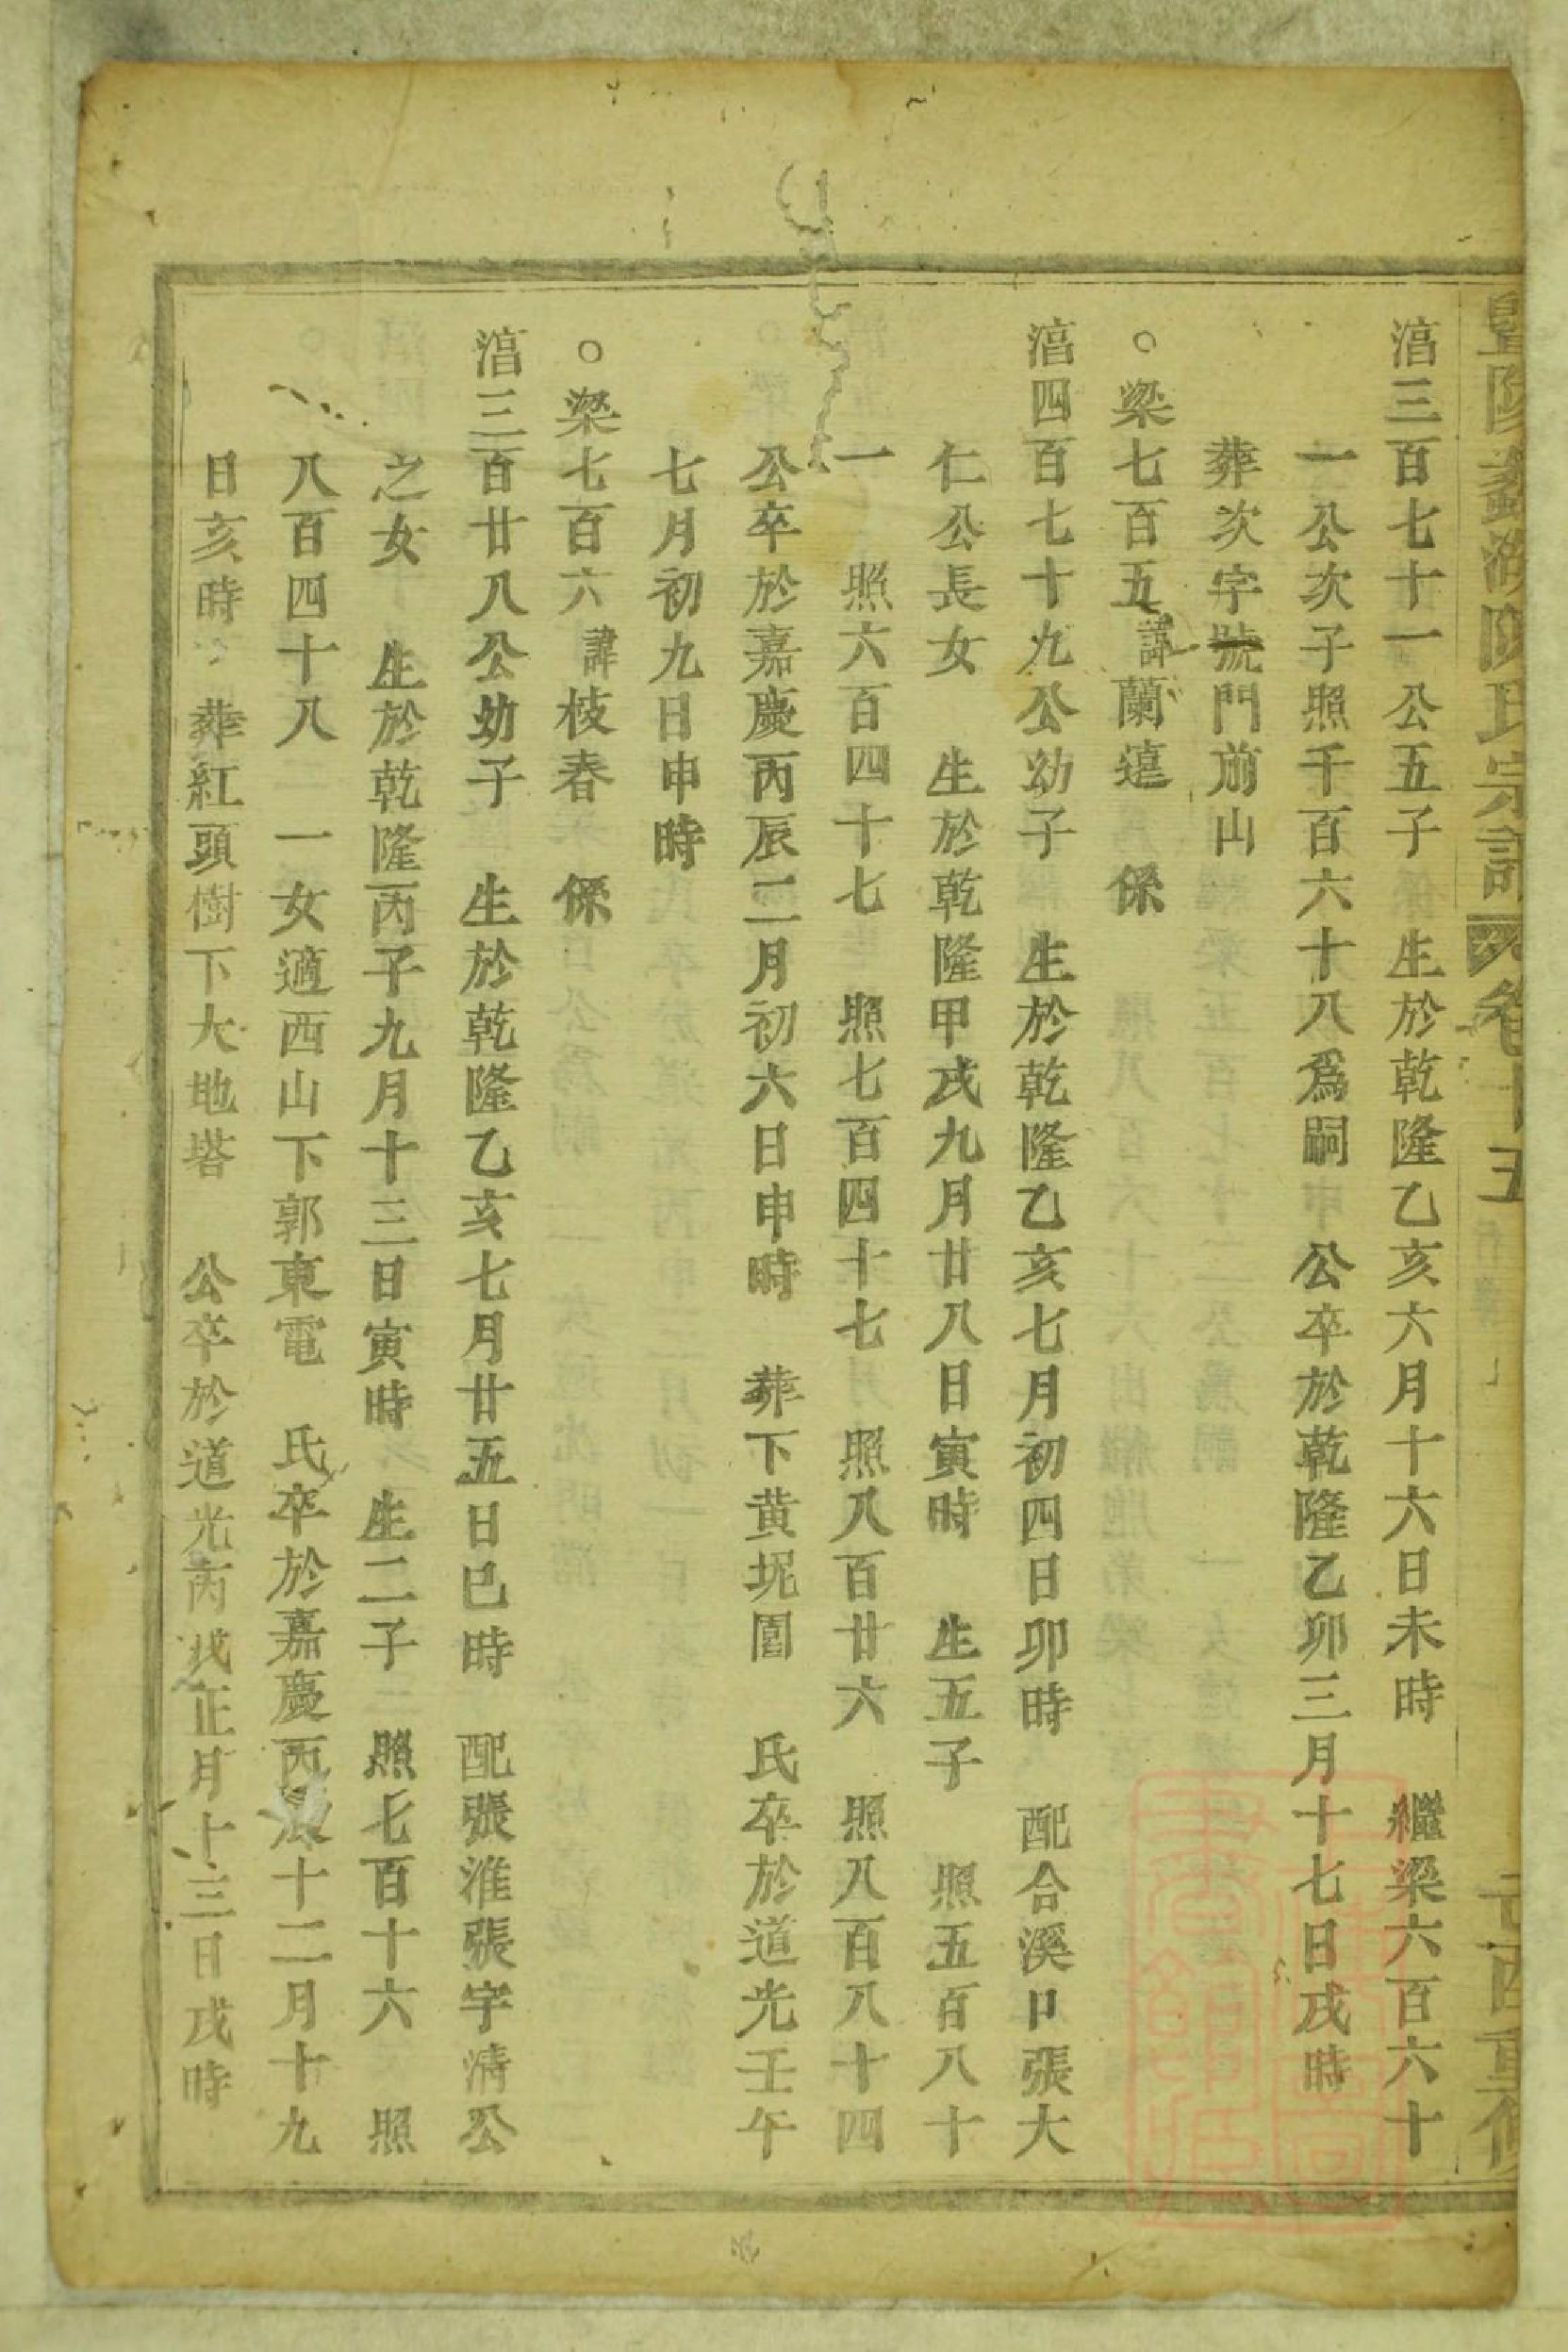 暨陽義陳氏宗譜 卷十五 亥酉重修
湻三百七十一公五子 生於乾隆乙亥六月十六日未時 繼梁六百六十
一公次子照千百六十八為嗣 公卒於乾隆乙卯三月十七日戌時
葬次字號門前山
○梁七百五諱蘭薳 係
湻四百七十九公幼子 生於乾隆乙亥七月初四日卯時 配合溪口張大
仁公長女 生於乾隆甲戌九月廿八日寅時 生五子 照五百八十
一 照六百四十七 照七百四十七 照八百廿六 照八百八十四
公卒於嘉慶丙辰二月初六日申時 葬下黄坭圊 氏卒於道光壬午
七月初九日申時
○梁七百六諱枝春 係
湻三百廿八公幼子 生於乾隆乙亥七月廿五日巳時 配張淮張字清公
之女 生於乾隆丙子九月十三日寅時 生二子 照七百十六 照
八百四十八 一女適西山下郭東電 氏卒於嘉慶丙辰十二月十九
日亥時 葬紅頭樹下大地塔 公卒於道光丙戌正月十三日戌時